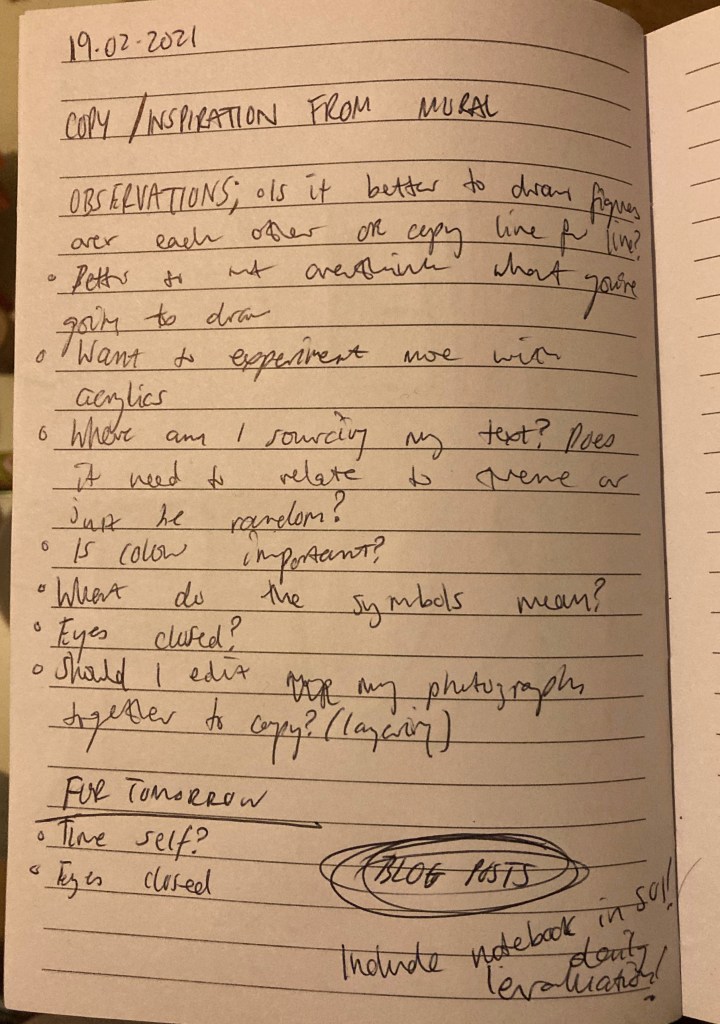 19.02.2021
COPY/INSPIRATION FROM MURAL
OBSERVATIONS; • Is it better to draw figures
over each other OR copy line for line?
• Better to not overthink what you're
going to draw
• Want to experiment more with
acrylics
• Where am I sourcing my text? Does
it need to relate to theme or
just be random?
• Is colour important?
• What do the symbols mean?
• Eyes closed?
• Should I edit my photographs
together to copy? (layering)
FOR TOMORROW
• Time self?
• Eyes closed
BLOG POSTS
Include notebook in
evaluation!